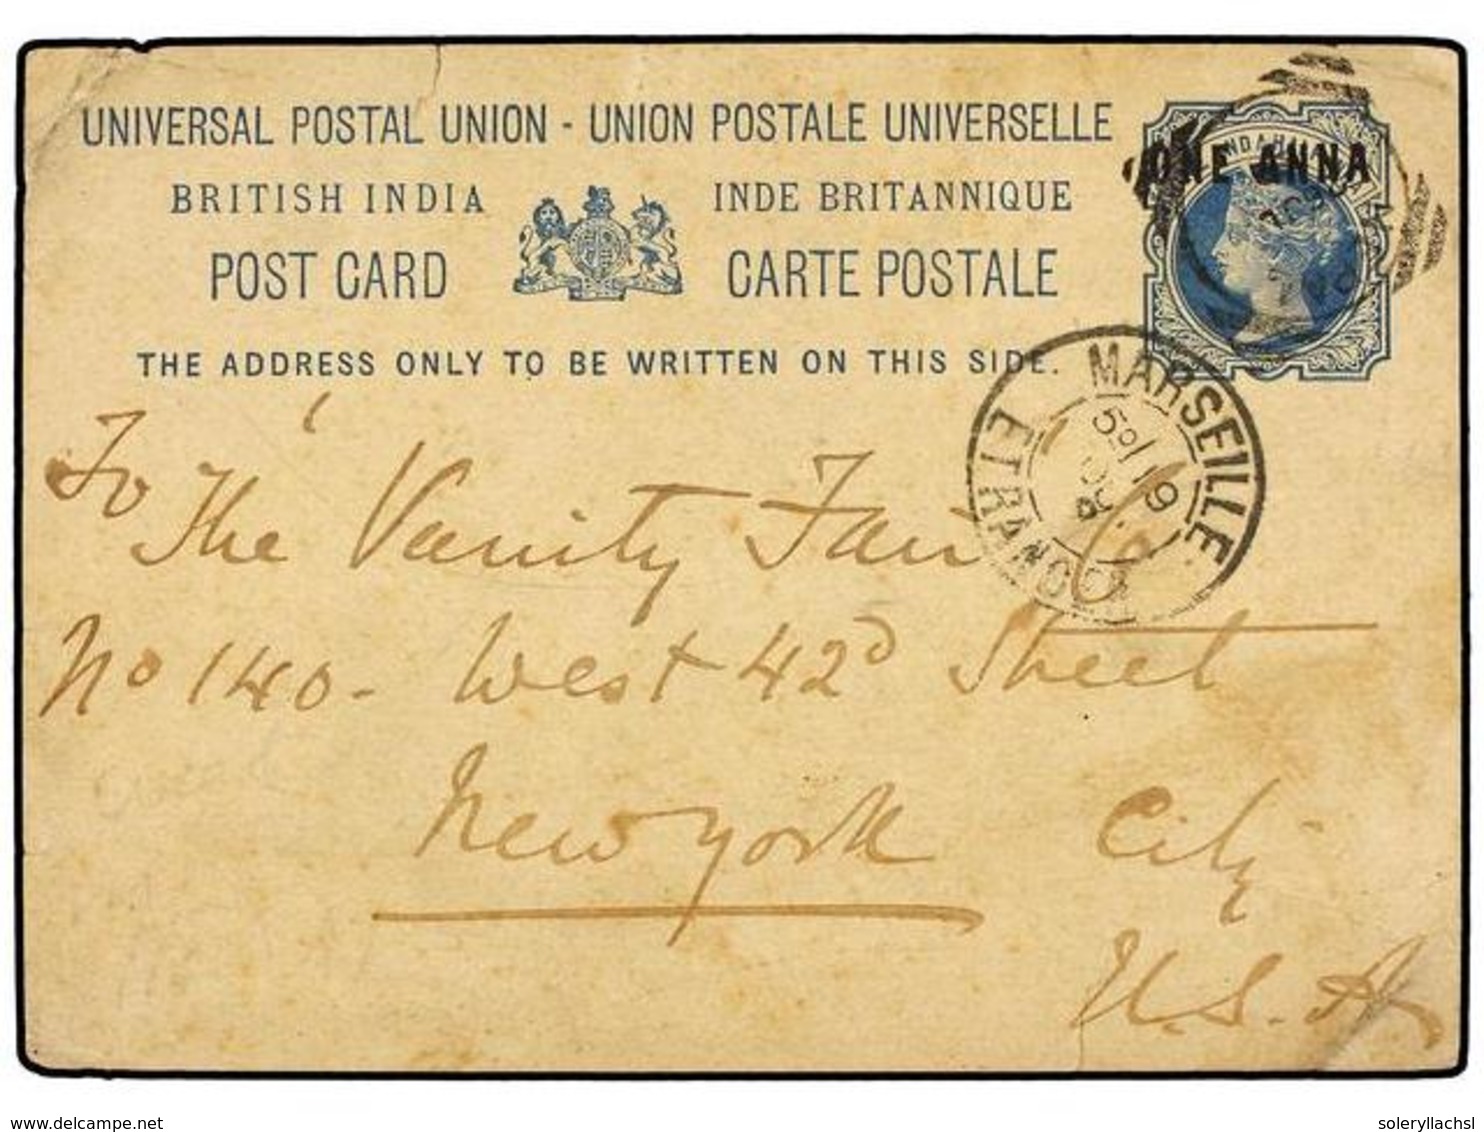 UNIVERSAL POSTAL UNION - UNION POSTALE UNIVERSELLE
BRITISH INDIA INDE BRITANNIQUE
POST CARD CARTE POSTALE
THE ADDRESS ONLY TO BE WRITTEN ON THIS SIDE.
ONE ANNA
MARSEILLE
ETRANGER
To
The Vanity Fair Co
No 140 - West 42d Street
New York City
U.S.A
www.delcampe.net
soleryllachsl